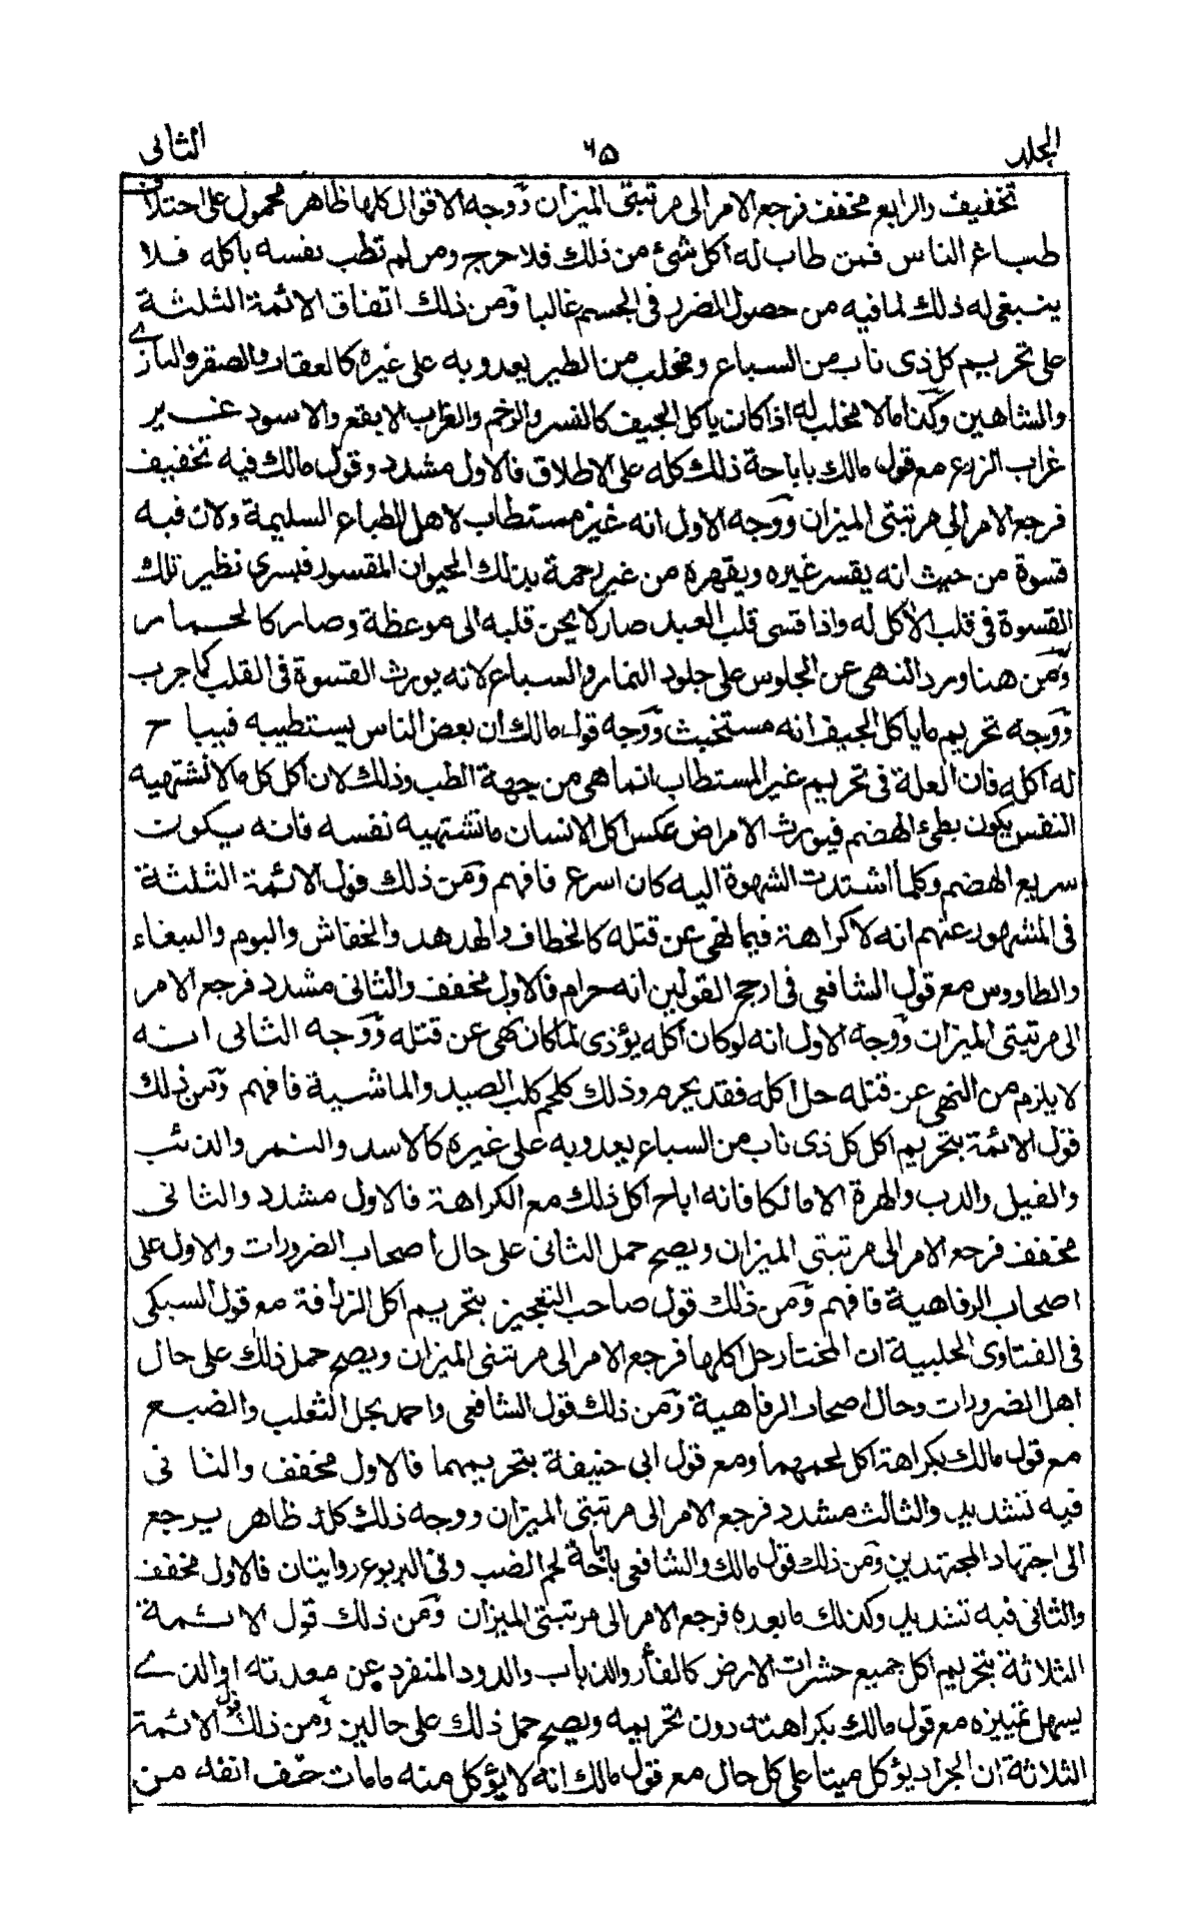 المجلد ٦٥ الثانى
تخفيف والرابع مخفف فرجع الامر الى مرتبتى الميزان ووجه الاقوال كلها ظاهر محمول على اختلاف
طباع الناس فمن طاب له اكل شئ من ذلك فلا حرج ومن لم تطب نفسه باكله فلا
ينبغى له ذلك لما فيه من حصول الضرر فى الجسم غالبا ومن ذلك اتفاق الائمة الثلثة
على تحريم كل ذى ناب من السباع ومخلب من الطير يعدو به على غيره كالعقاب والصقر والبازے
والشاهين وكذا ما لا مخلب له اذا كان ياكل الجيف كالنسر والرخم والغراب الابقع والاسود غير
غراب الزرع مع قول مالك باباحة ذلك كله على الاطلاق فالاول مشدد وقول مالك فيه تخفيف
فرجع الامر الى مرتبتى الميزان ووجه الاول انه غير مستطاب لاهل الطباع السليمة ولان فيه
قسوة من حيث انه يقسر غيره ويقهره من غير رحمة بذلك الحيوان المقسور فيسرى نظير تلك
القسوة فى قلب الاكل له واذا قسى قلب العبد صار لا يحن قلبه الى موعظة وصار كالحمار
ومن هنا ورد النهى عن الجلوس على جلود النمار والسباع لانه يورث القسوة فى القلب كما جرب
ووجه تحريم ما ياكل الجيف انه مستخبث ووجه قول مالك ان بعض الناس يستطيبه فيباح
له اكله فان العلة فى تحريم غير المستطاب انما هى من جهة الطب وذلك لان اكل كل ما لا تشتهيه
النفس يكون بطئ الهضم فيورث الامراض عكس اكل الانسان ما تشتهيه نفسه فانه يكون
سريع الهضم وكلما اشتدت الشهوة اليه كان اسرع فافهم ومن ذلك قول الائمة الثلثة
فى المشهور عنهم انه لا كراهة فيما نهى عن قتله كالخطاف والهدهد والخفاش والبوم والببغاء
والطاووس مع قول الشافعى فى ارجح القولين انه حرام فالاول مخفف والثانى مشدد فرجع الامر
الى مرتبتى الميزان ووجه الاول انه لو كان اكله يؤذى لما كان نهى عن قتله ووجه الثانى انه
لا يلزم من النهى عن قتله حل اكله فقد يحرم وذلك كلحم كلب الصيد والماشية فافهم ومن ذلك
قول الائمة بتحريم اكل كل ذى ناب من السباع يعدو به على غيره كالاسد والنمر والذئب
والفيل والدب والهرة الا مالكا فانه اباح اكل ذلك مع الكراهة فالاول مشدد والثانى
مخفف فرجع الامر الى مرتبتى الميزان ويصح حمل الثانى على حال اصحاب الضرورات والاول على
اصحاب الرفاهية فافهم ومن ذلك قول صاحب التعجيز بتحريم اكل الزرافة مع قول السبكى
فى الفتاوى الحلبية ان المختار حل اكلها فرجع الامر الى مرتبتى الميزان ويصح حمل ذلك على حال
اهل الضرورات وحال اصحاب الرفاهية ومن ذلك قول الشافعى واحمد بحل الثعلب والضبع
مع قول مالك بكراهة اكل لحمهما ومع قول ابى حنيفة بتحريمهما فالاول مخفف والثانى
فيه تشديد والثالث مشدد فرجع الامر الى مرتبتى الميزان ووجه ذلك كله ظاهر يرجع
الى اجتهاد المجتهدين ومن ذلك قول مالك والشافعى باباحة لحم الضب وفى اليربوع روايتان فالاول مخفف
والثانى فيه تشديد وكذلك ما بعده فرجع الامر الى مرتبتى الميزان ومن ذلك قول الائمة
الثلاثة بتحريم اكل جميع حشرات الارض كالفأر والذباب والدود المنفرد عن معدته او الذے
يسهل تمييزه مع قول مالك بكراهته دون تحريمه ويصح حمل ذلك على حالين ومن ذلك قول الائمة
الثلاثة ان الجراد يؤكل ميتا على كل حال مع قول مالك انه لا يؤكل منه ما مات حتف انفه من